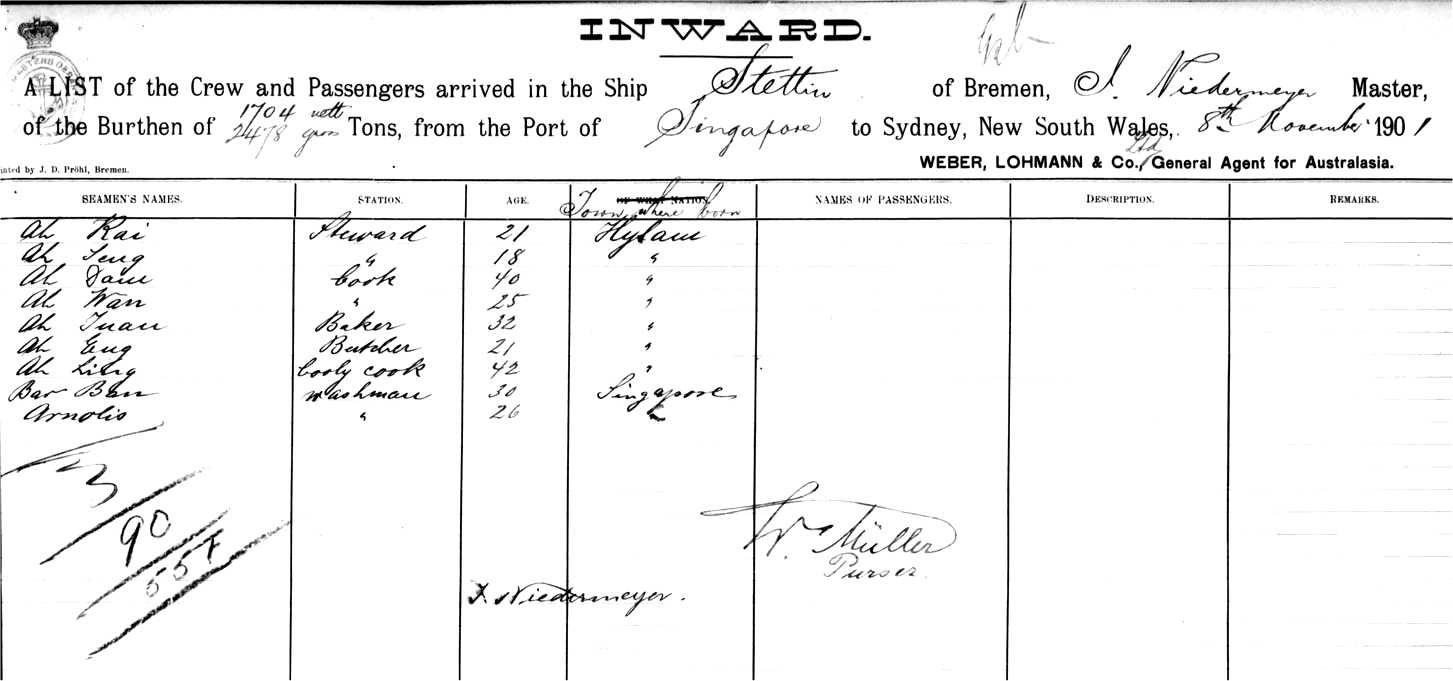 INWARD.
A LIST of the Crew and Passengers arrived in the Ship Stettin of Bremen, J. Niedermeyer Master,
of the Burthen of 1704 nett 2478 gross Tons, from the Port of Singapore to Sydney, New South Wales, 8th November 1901
WEBER, LOHMANN & Co., Ltd General Agent for Australasia.
inted by J. D. Pröhl, Bremen.
SEAMEN'S NAMES. STATION. AGE. OF WHAT NATION. Town where born NAMES OF PASSENGERS. DESCRIPTION. REMARKS.
Ah Kai Steward 21 Hylam
Ah Seng " 18 "
Ah Dam Cook 40 "
Ah Wan " 25 "
Ah Juan Baker 32 "
Ah Eng Butcher 21 "
Ah Ling Cooly cook 42 "
Bar Ban washman 30 Singapore
Arnolis " 26 "
3
90
557
W. Müller
Purser.
J. Niedermeyer.